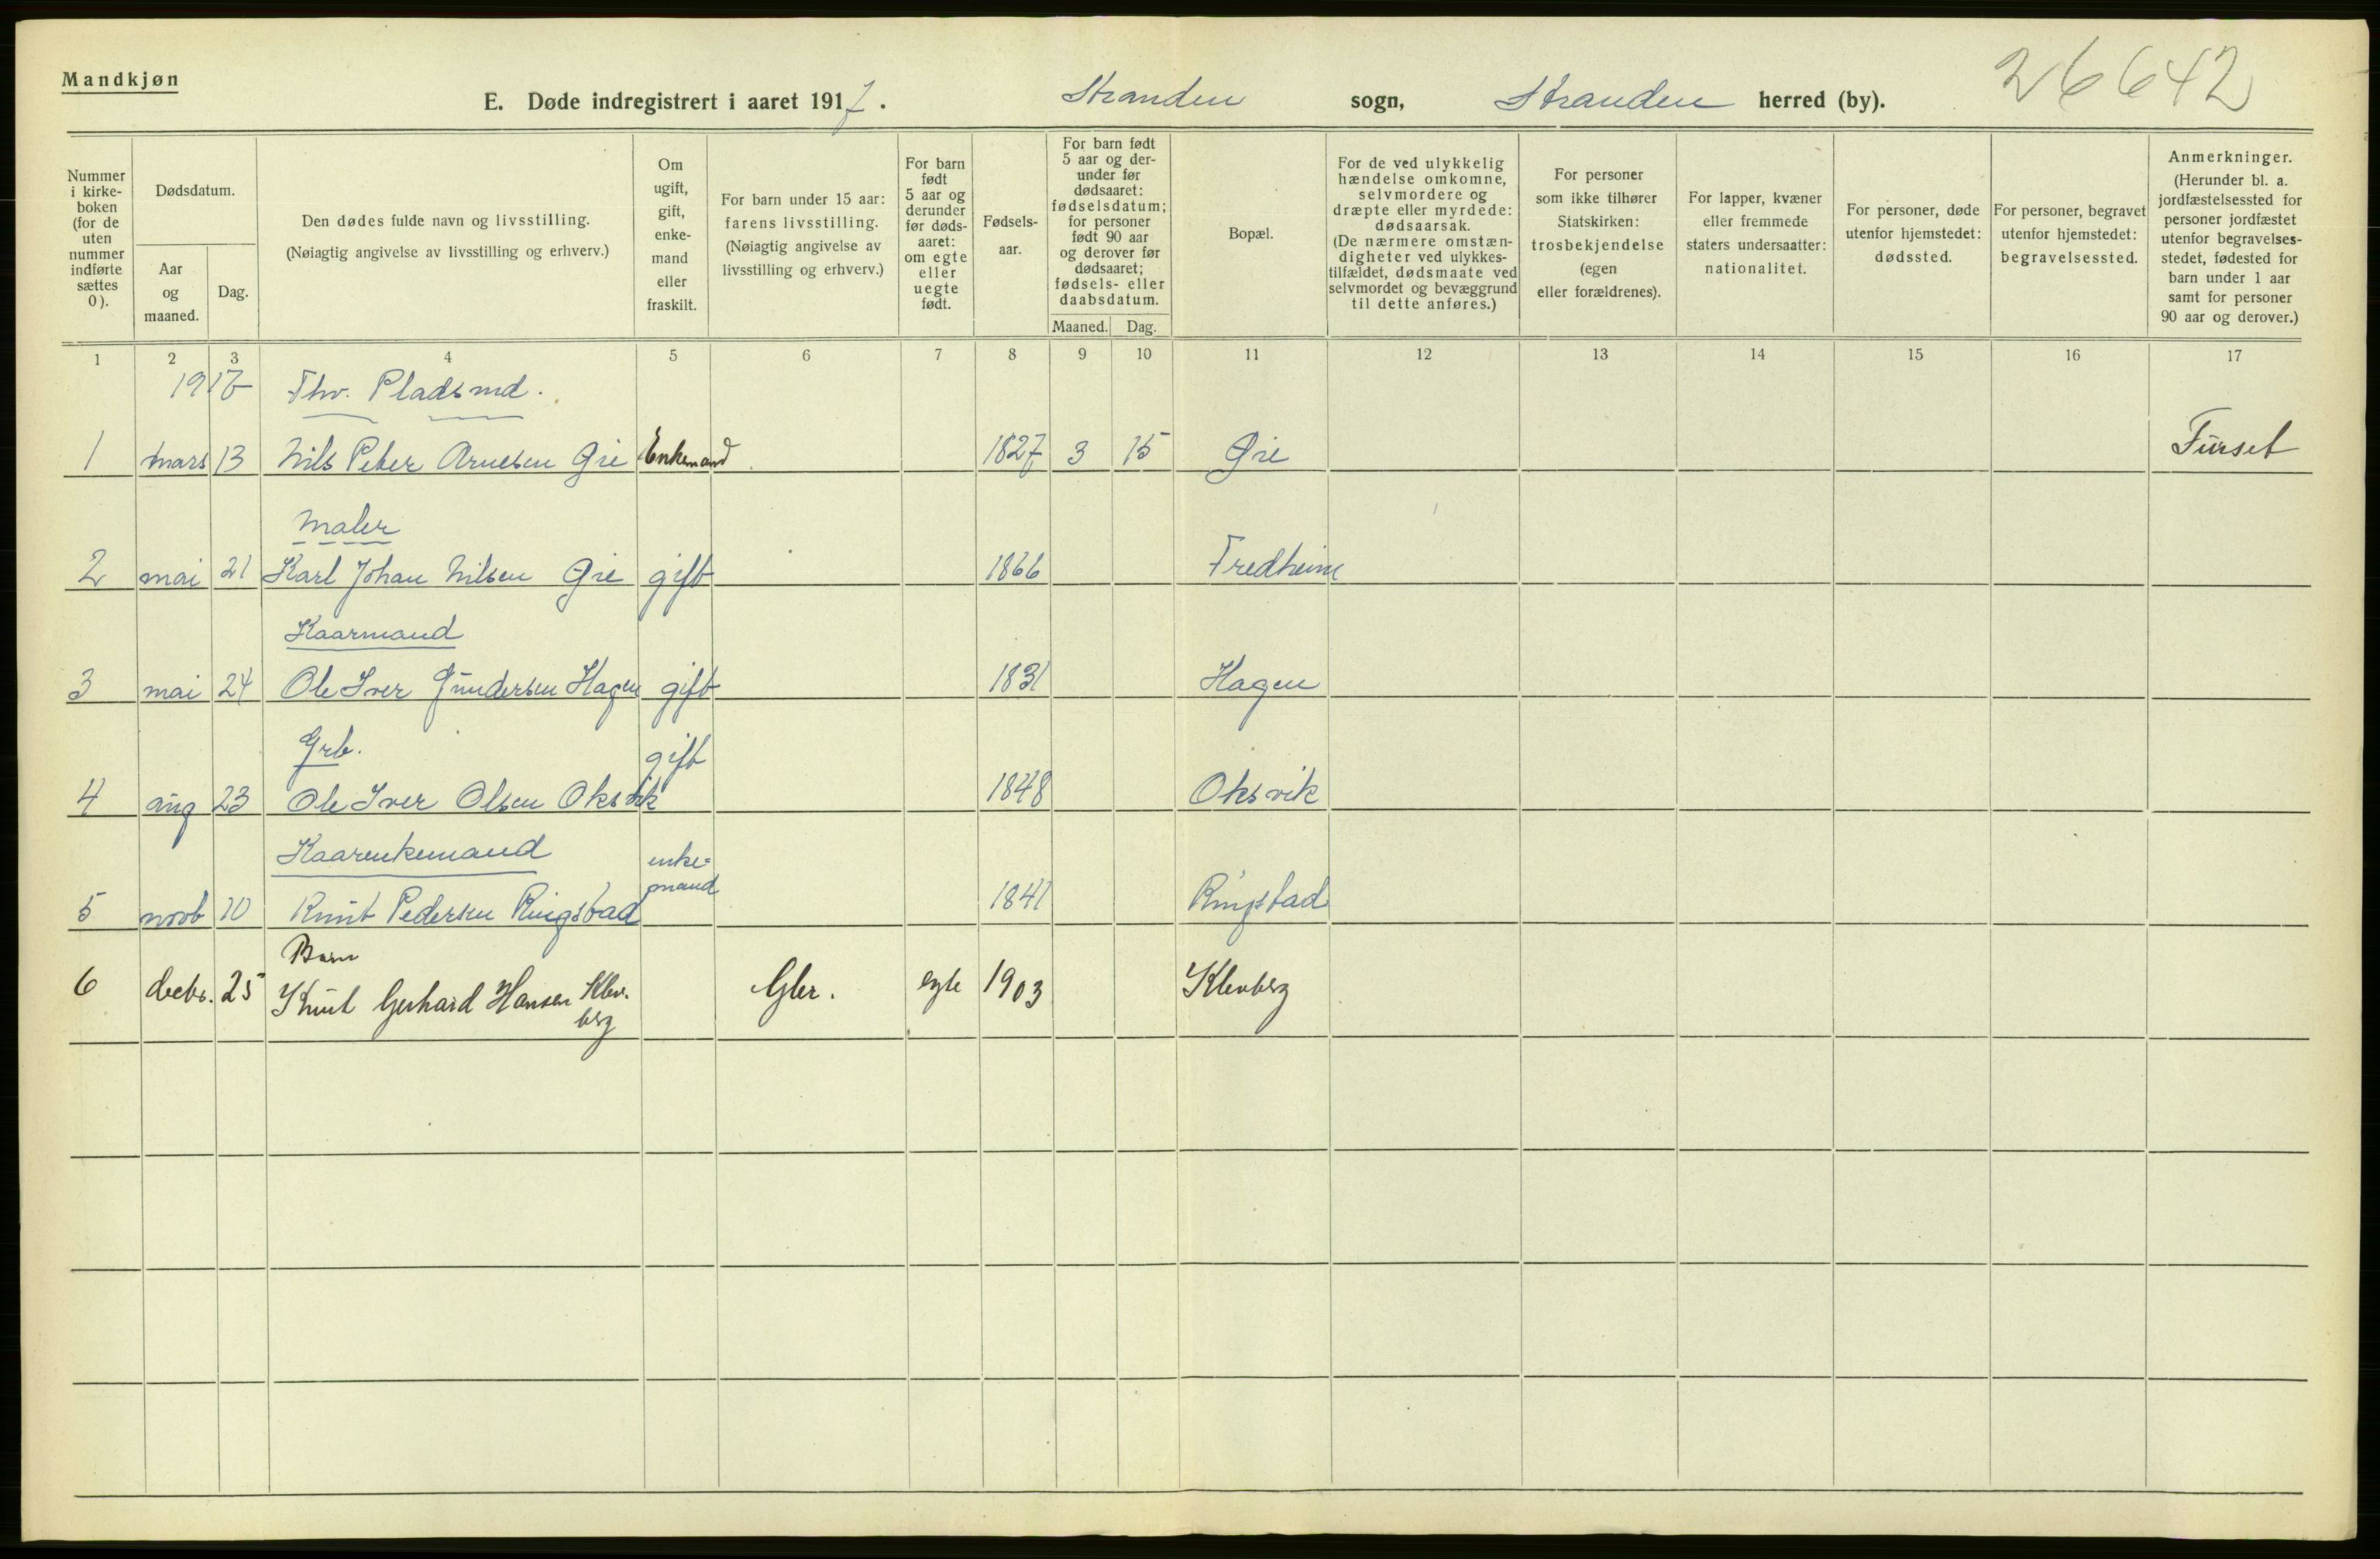 Mandkjøn
E. Døde indregistrert i aaret 1917. Stranden sogn, Stranden herred (by). 26642
Nummer i kirke-boken (for de uten nummer indførte sættes 0).
Dødsdatum.
Aar og maaned.
Dag.
Den dødes fulde navn og livsstilling.
(Nøiagtig angivelse av livsstilling og erhverv.)
Om ugift, gift, enke-mand eller fraskilt.
For barn under 15 aar: farens livsstilling.
(Nøiagtig angivelse av livsstilling og erhverv.)
For barn født 5 aar og derunder før døds-aaret: om egte eller uegte født.
Fødsels-aar.
For barn født 5 aar og der-under før dødsaaret: fødselsdatum; for personer født 90 aar og derover før dødsaaret; fødsels- eller daabsdatum.
Maaned. Dag.
Bopæl.
For de ved ulykkelig hændelse omkomne, selvmordere og dræpte eller myrdede: dødsaarsak.
(De nærmere omstæn-digheter ved ulykkes-tilfældet, dødsmaate ved selvmordet og bevæggrund til dette anføres.)
For personer som ikke tilhører Statskirken: trosbekjendelse (egen eller forældrenes).
For lapper, kvæner eller fremmede staters undersaatter: nationalitet.
For personer, døde utenfor hjemstedet: dødssted.
For personer, begravet utenfor hjemstedet: begravelsessted.
Anmerkninger.
(Herunder bl. a. jordfæstelsessted for personer jordfæstet utenfor begravelses-stedet, fødested for barn under 1 aar samt for personer 90 aar og derover.)
1 2 3 4 5 6 7 8 9 10 11 12 13 14 15 16 17
1917 Fhv. Pladsmd.
1 mars 13 Nils Peter Arnesen Øie Enkemand 1827 3 15 Øie Furset
Maler
2 mai 21 Karl Johan Nilsen Øie gift 1866 Fredheim
Kaarmand
3 mai 24 Ole Iver Gundersen Hagen gift 1831 Hagen
Grb. gift
4 aug 23 Ole Iver Olsen Oksvik 1848 Oksvik
Kaarenkemand enke-mand
5 novb 10 Knut Pedersen Ringstad 1841 Ringstad
Barn
6 decbr. 25 Knut Gerhard Hansen Klevberg Gbr. egte 1903 Klevberg